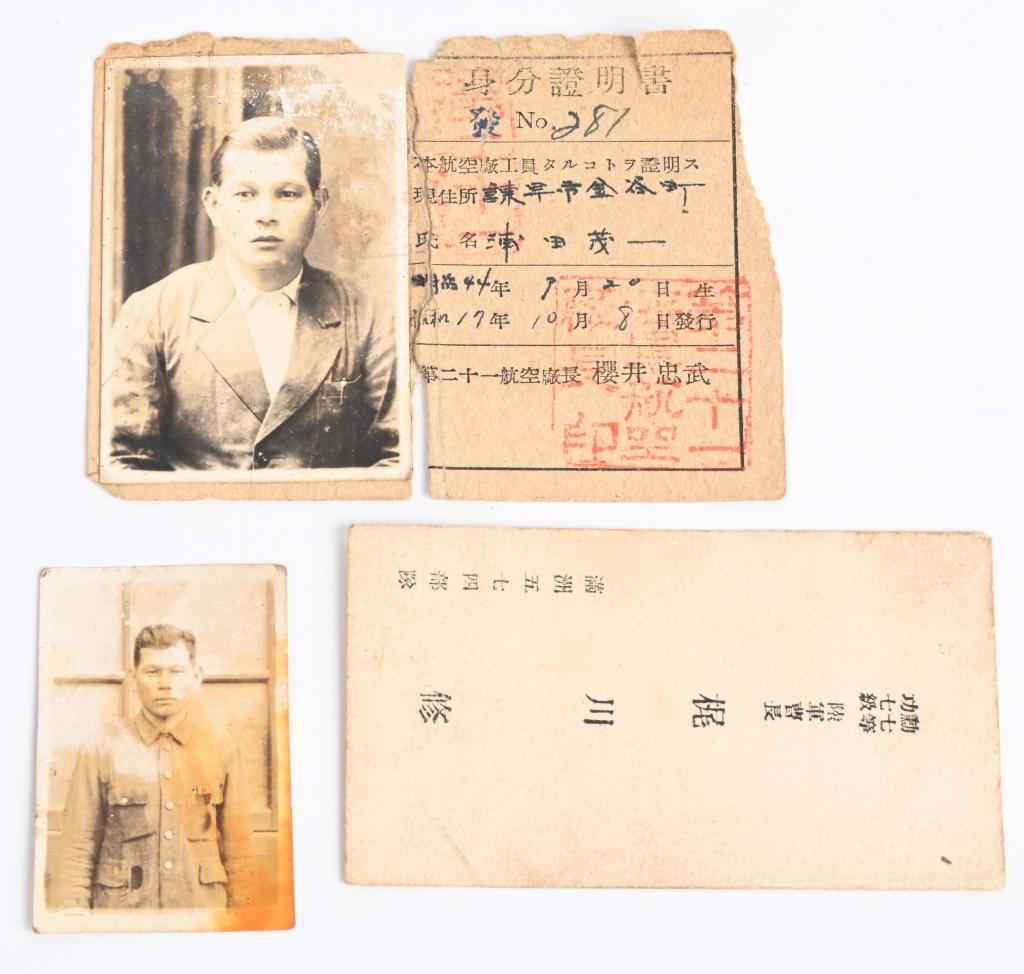 身分證明書
發 No. 281
本航空廠工員タルコトヲ證明ス
現住所 諫早市金谷町
氏名 浦田茂一
44年 9月20日生
昭和17年10月8日發行
第二十一航空廠長 櫻井忠武
滿洲五七四部隊
勳七等
功七級
陸軍曹長
梶川修